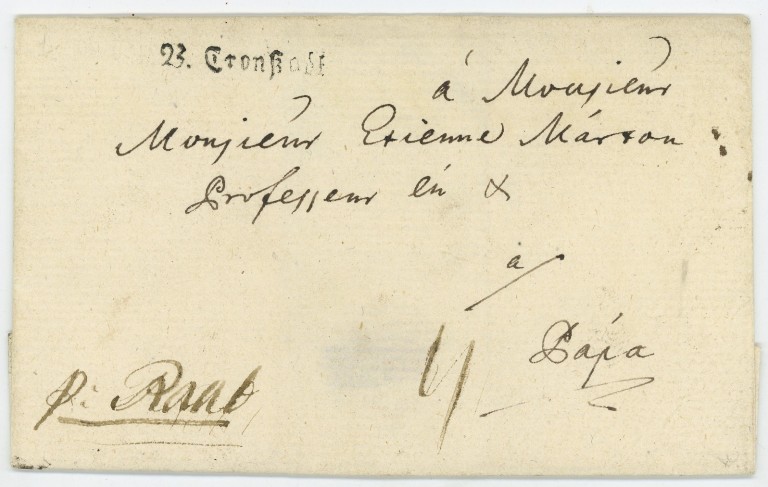 B. Cronstadt
á Monsieur
Monsieur Etienne Márton
Professeur en &
à
Pápa
4
pr Raab